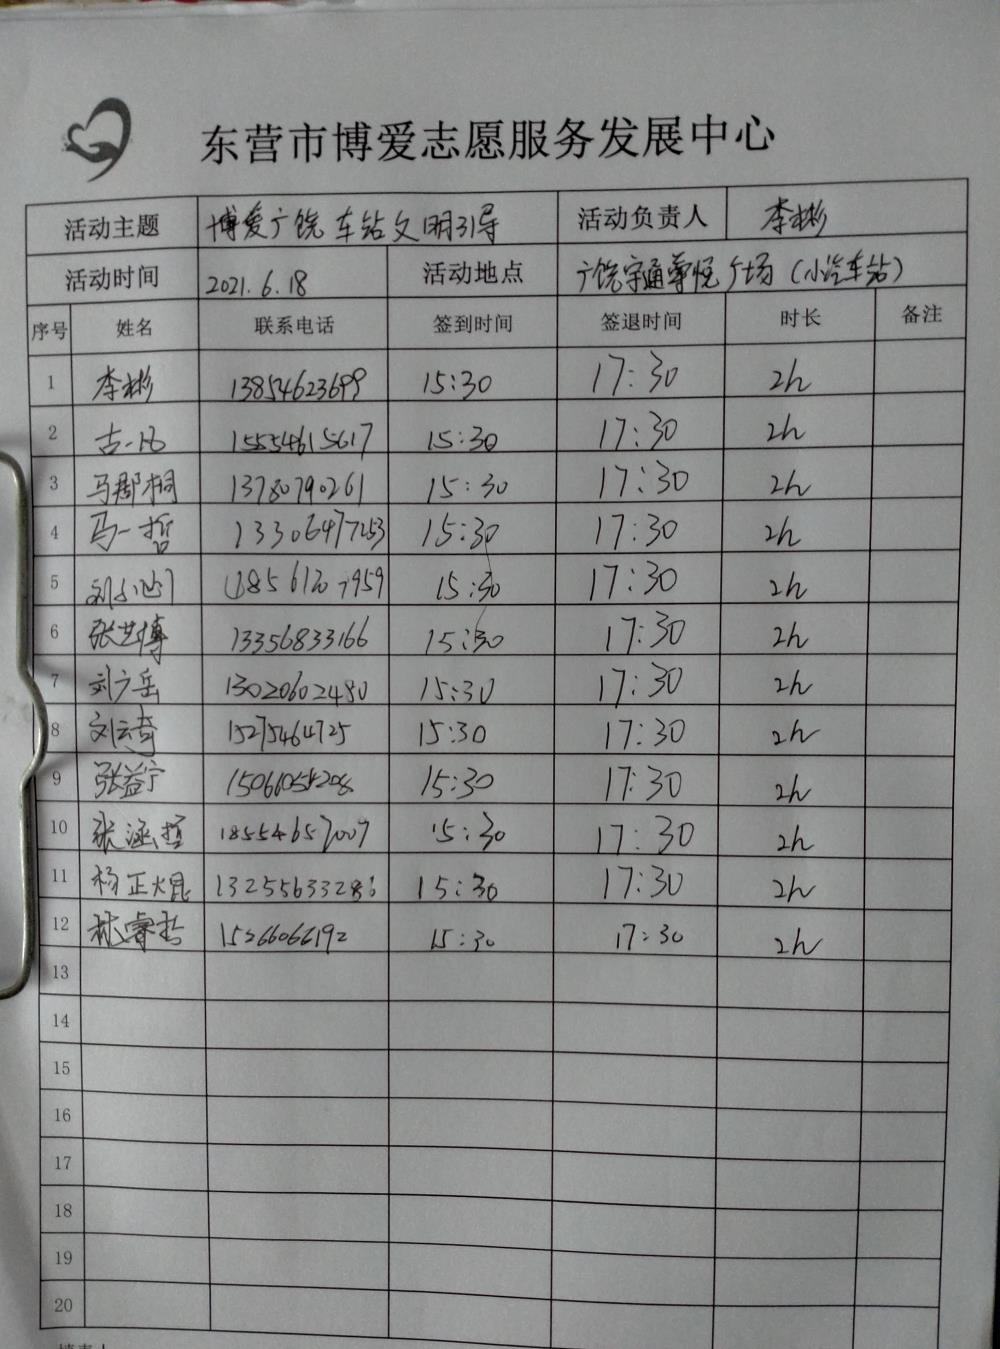 东营市博爱志愿服务发展中心
活动主题 博爱广饶 车站文明引导 活动负责人 李彬
活动时间 2021.6.18 活动地点 广饶宇通尊悦广场（小汽车站）
序号 姓名 联系电话 签到时间 签退时间 时长 备注
1 李彬 13854623699 15:30 17:30 2h
2 古一凡 15554615617 15:30 17:30 2h
3 马郡桐 13780790261 15:30 17:30 2h
4 马一哲 13306477253 15:30 17:30 2h
5 15:30 17:30 2h
6 张艺博 13356833166 15:30 17:30 2h
7 刘广岳 13020602480 15:30 17:30 2h
8 刘云奇 15275464725 15:30 17:30 2h
9 张益宁 15:30 17:30 2h
10 张涵哲 18554657007 15:30 17:30 2h
11 杨正大昆 13255633286 15:30 17:30 2h
12 林睿哲 15266066192 15:30 17:30 2h
13
14
15
16
17
18
19
20